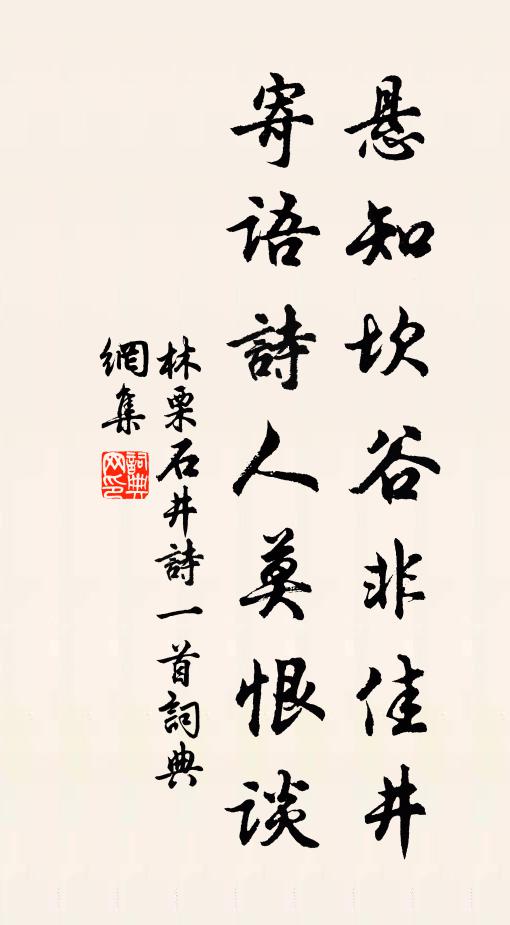 悬知坎谷非佳井
寄语詩人莫恨谈
林栗石井詩一首詞典
網集
詞典
网印